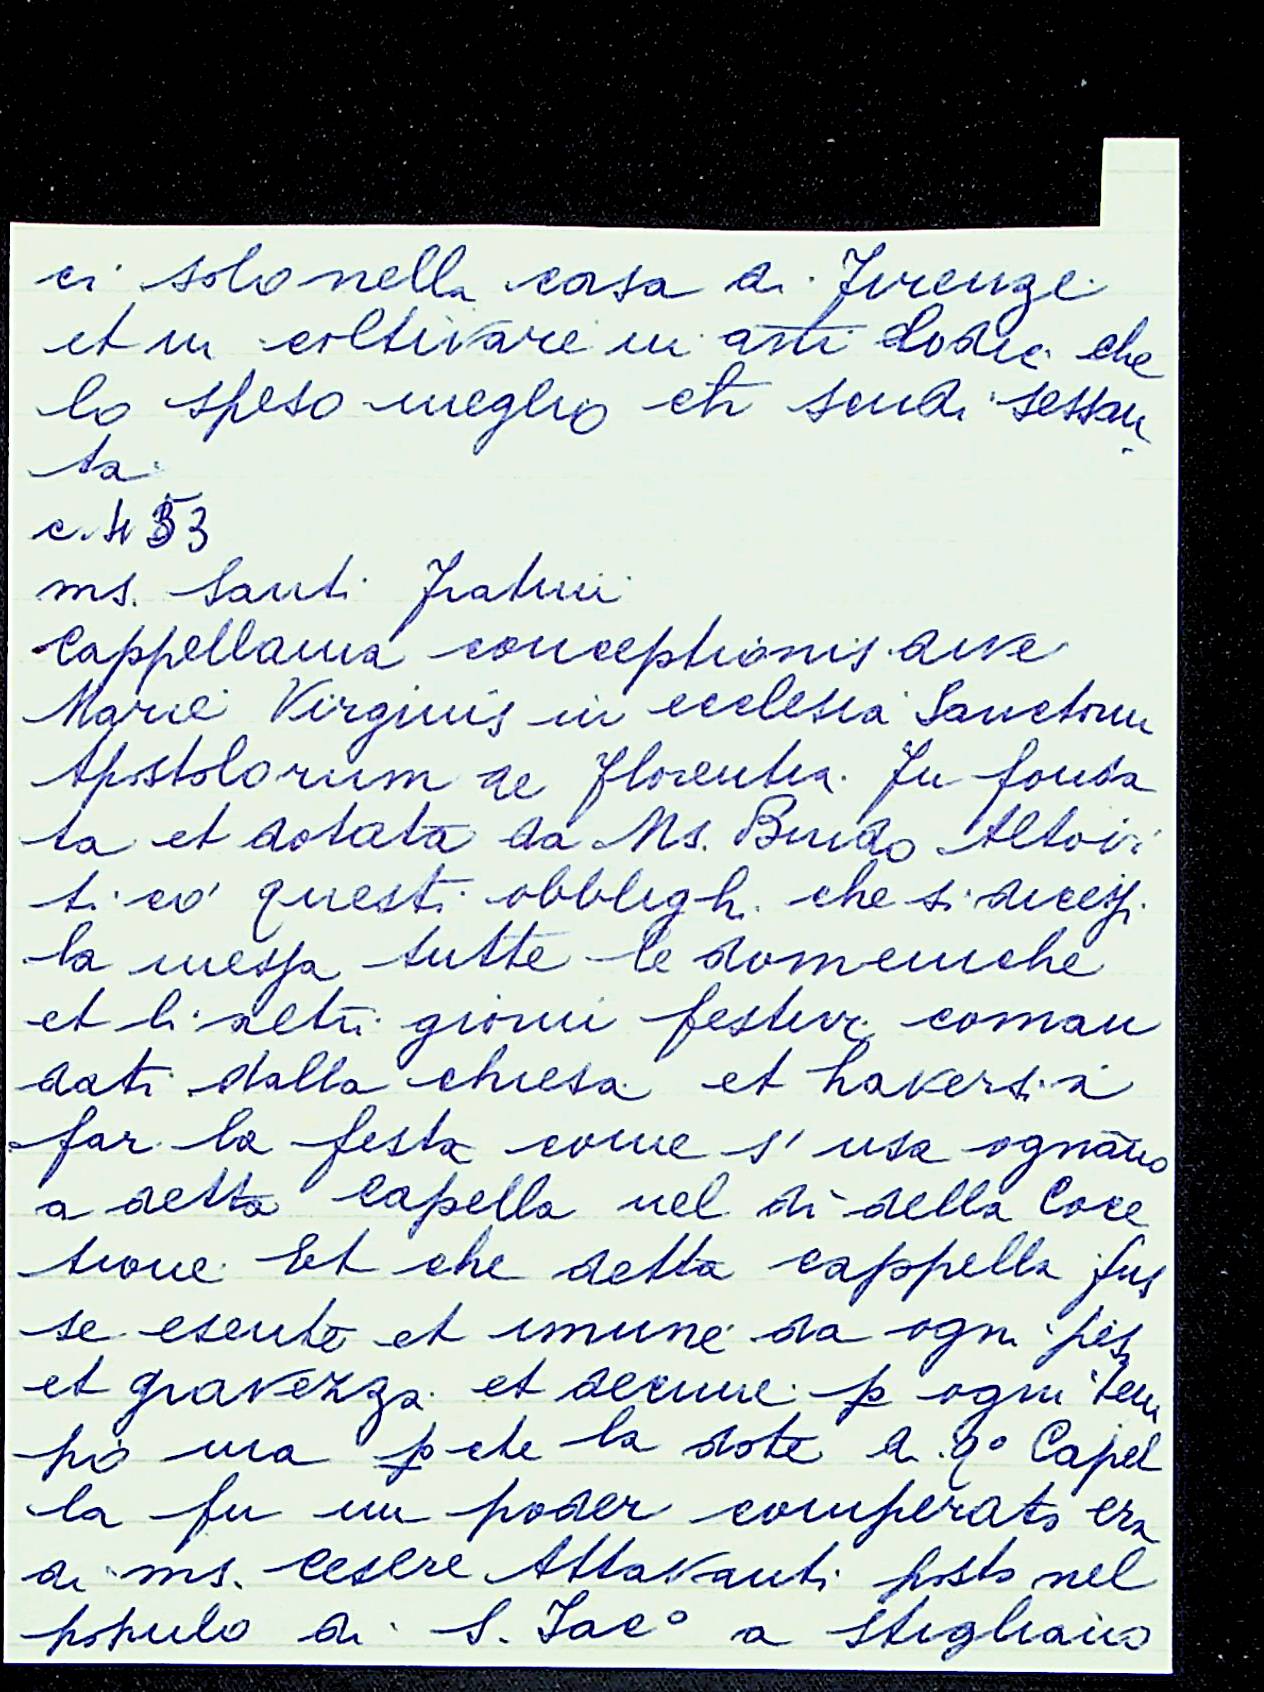 ci solo nella casa di Firenze
et in coltivare in anni dodici che
ho speso meglio che scudi sessan
ta
c. 453
ms. Santi Fratini
Cappellania conceptionis dive
Marie Virginis in ecclesia Sanctorum
Apostolorum de Florentia. Fu fonda
ta et dotata da Ms. Bindo Altovi
ti cō questi obblighi che si dicessi
la messa tutte le domeniche
et li altri giorni festivi coman
dati dalla chiesa et haversi a
far la festa come s'usa ognāno
a detta Capella nel dì della Coce
tione. Et che detta cappella fus
se esente et imune da ogni
et gravezza et decime p ogni tem
po ma pche la dote di qº Capel
la fu un poder comperato era
di ms. Cesere Attavanti posto nel
populo di S. Jacº a Stigliano